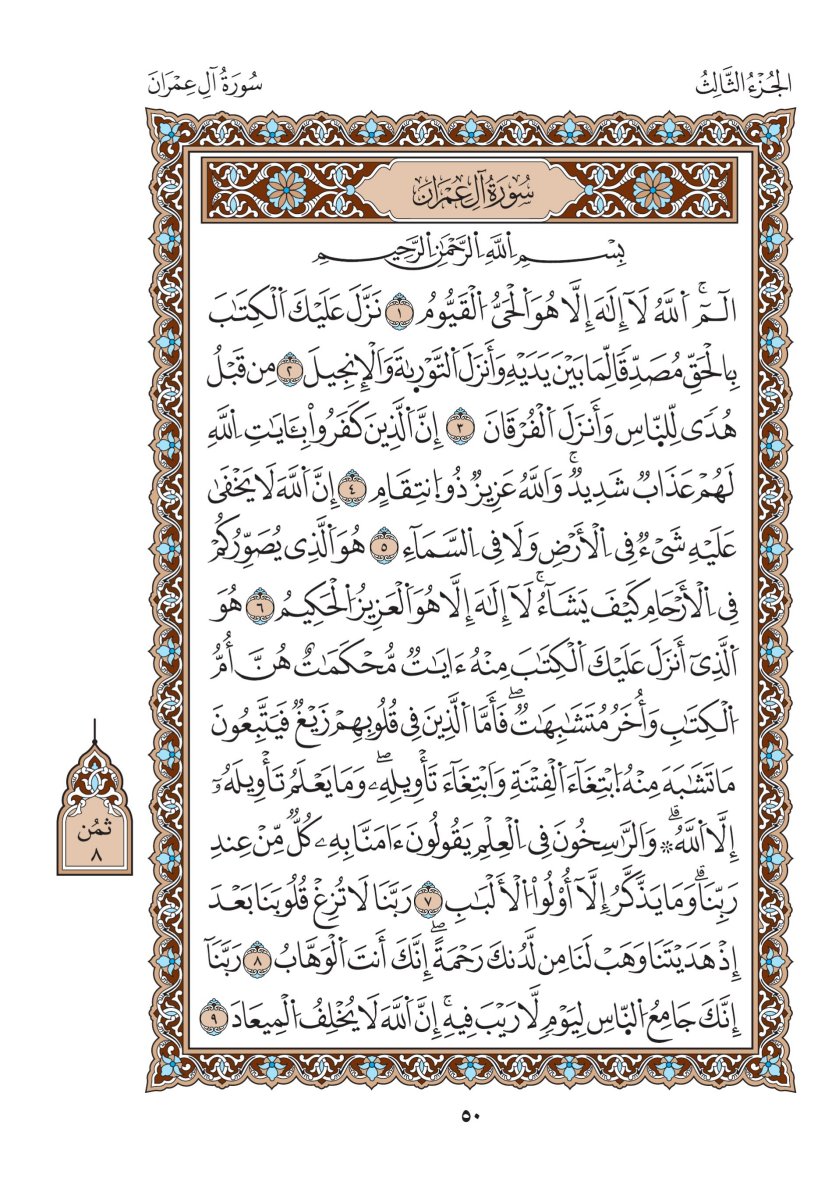 الجُزْءُ الثَّالِثُ
سُورَةُ آلِ عِمْرَانَ
سُورَةُ آلِ عِمْرَانَ
بِسْمِ اِ۬للَّهِ اِ۬لرَّحْمَٰنِ اِ۬لرَّحِيمِ
الٓمٓۚ اَ۬للَّهُ لَآ إِلَٰهَ إِلَّا هُوَ اَ۬لْحَيُّ اُ۬لْقَيُّومُ ١ نَزَّلَ عَلَيْكَ اَ۬لْكِتَٰبَ
بِالْحَقِّ مُصَدِّقًا لِّمَا بَيْنَ يَدَيْهِ وَأَنزَلَ اَ۬لتَّوْرَىٰةَ وَالْإِنجِيلَ ٢ مِن قَبْلُ
هُدًى لِّلنَّاسِ وَأَنزَلَ اَ۬لْفُرْقَانَ ٣ إِنَّ اَ۬لَّذِينَ كَفَرُواْ بِـَٔايَٰتِ اِ۬للَّهِ
لَهُمْ عَذَابٌ شَدِيدٌۚ وَاللَّهُ عَزِيزٌ ذُو اُ۪نتِقَامٍ ٤ إِنَّ اَ۬للَّهَ لَا يَخْفَىٰ
عَلَيْهِ شَيْءٌ فِي اِ۬لْأَرْضِ وَلَا فِي اِ۬لسَّمَآءِ ٥ هُوَ اَ۬لَّذِي يُصَوِّرُكُمْ
فِي اِ۬لْأَرْحَامِ كَيْفَ يَشَآءُۚ لَآ إِلَٰهَ إِلَّا هُوَ اَ۬لْعَزِيزُ اُ۬لْحَكِيمُ ٦ هُوَ
اَ۬لَّذِيٓ أَنزَلَ عَلَيْكَ اَ۬لْكِتَٰبَ مِنْهُ ءَايَٰتٌ مُّحْكَمَٰتٌ هُنَّ أُمُّ
اُ۬لْكِتَٰبِ وَأُخَرُ مُتَشَٰبِهَٰتٌۖ فَأَمَّا اَ۬لَّذِينَ فِي قُلُوبِهِمْ زَيْغٌ فَيَتَّبِعُونَ
مَا تَشَٰبَهَ مَنْهُ اُ۪بْتِغَآءَ اَ۬لْفِتْنَةِ وَابْتِغَآءَ تَأْوِيلِهِۦۖ وَمَا يَعْلَمُ تَأْوِيلَهُۥٓ
إِلَّا اَ۬للَّهُۗ۞ وَالرَّٰسِخُونَ فِي اِ۬لْعِلْمِ يَقُولُونَ ءَامَنَّا بِهِۦ كُلٌّ مِّنْ عِندِ
رَبِّنَاۗ وَمَا يَذَّكَّرُ إِلَّآ أُوْلُواْ اُ۬لْأَلْبَٰبِ ٧ رَبَّنَا لَا تُزِغْ قُلُوبَنَا بَعْدَ
إِذْ هَدَيْتَنَا وَهَبْ لَنَا مِن لَّدُنكَ رَحْمَةًۖ إِنَّكَ أَنتَ اَ۬لْوَهَّابُ ٨ رَبَّنَآ
إِنَّكَ جَامِعُ اُ۬لنَّاسِ لِيَوْمٍ لَّا رَيْبَ فِيهِۚ إِنَّ اَ۬للَّهَ لَا يُخْلِفُ اُ۬لْمِيعَادَ ٩
ثمُن
٨
٥٠